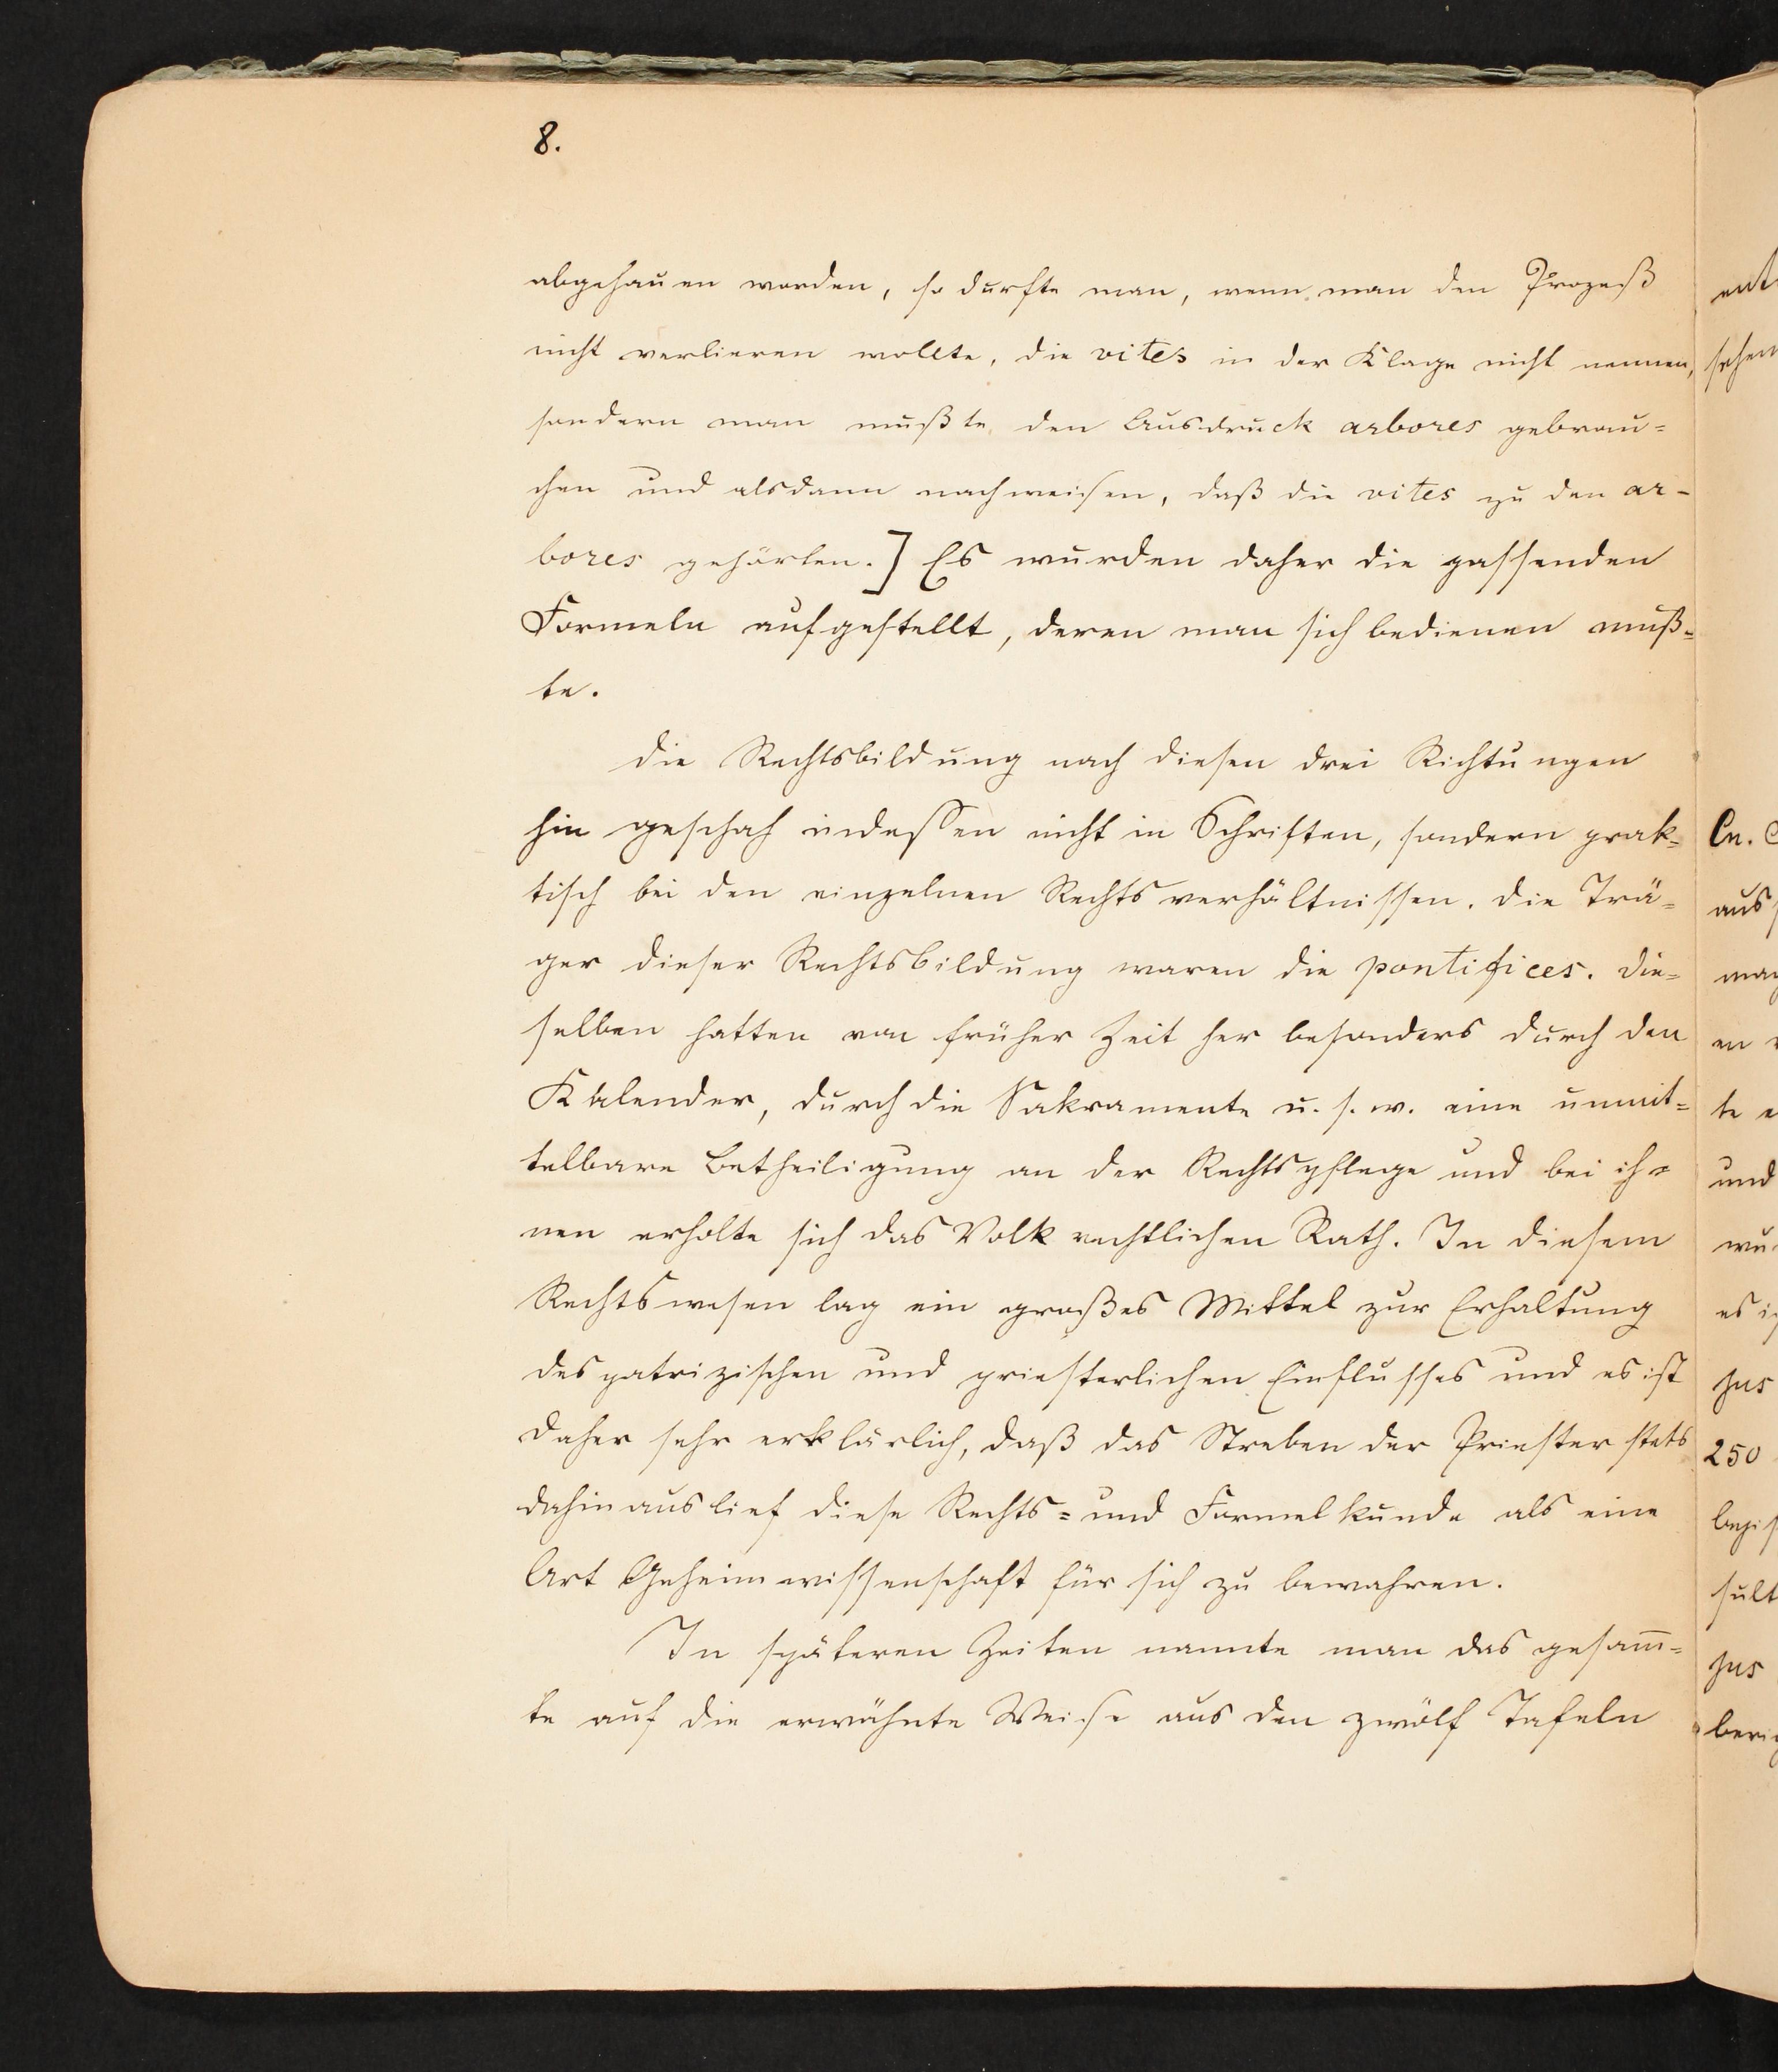 8.
abgehauen worden, so durfte man, wenn man den Prozeß
nicht verlieren wollte, die vites in der Klage nicht nennen,
sondern man mußte den Ausdruck arbores gebrau=
chen und alsdann nachweisen, daß die vites zu den ar-
bores gehörten.] Es wurden daher die passenden
Formeln aufgestellt, deren man sich bedienen muß=
te.
Die Rechtsbildung nach diesen drei Richtungen
hin geschah indessen nicht in Schriften, sondern prak=
tisch bei den einzelnen Rechtsverhältnissen. Die Trä=
ger dieser Rechtsbildung waren die pontifices. Die=
selben hatten von früher Zeit her besonders durch den
Kalender, durch die Sakramente u. s. w. eine unmit=
telbare Betheiligung an der Rechtspflege und bei ih=
nen erholte sich das Volk rechtlichen Rath. In diesem
Rechtswesen lag ein großes Mittel zur Erhaltung
des patrizischen und priesterlichen Einflusses und es ist
daher sehr erklärlich, daß das Streben der Priester stets
dahinaus lief diese Rechts= und Formelkunde als eine
Art Geheimwissenschaft für sich zu bewahren.
In späteren Zeiten nannte man das gesam̅=
te auf die erwähnte Weise aus den zwölf Tafeln
Cn.
aus
en
te
und
es
jus
250
sult
jus